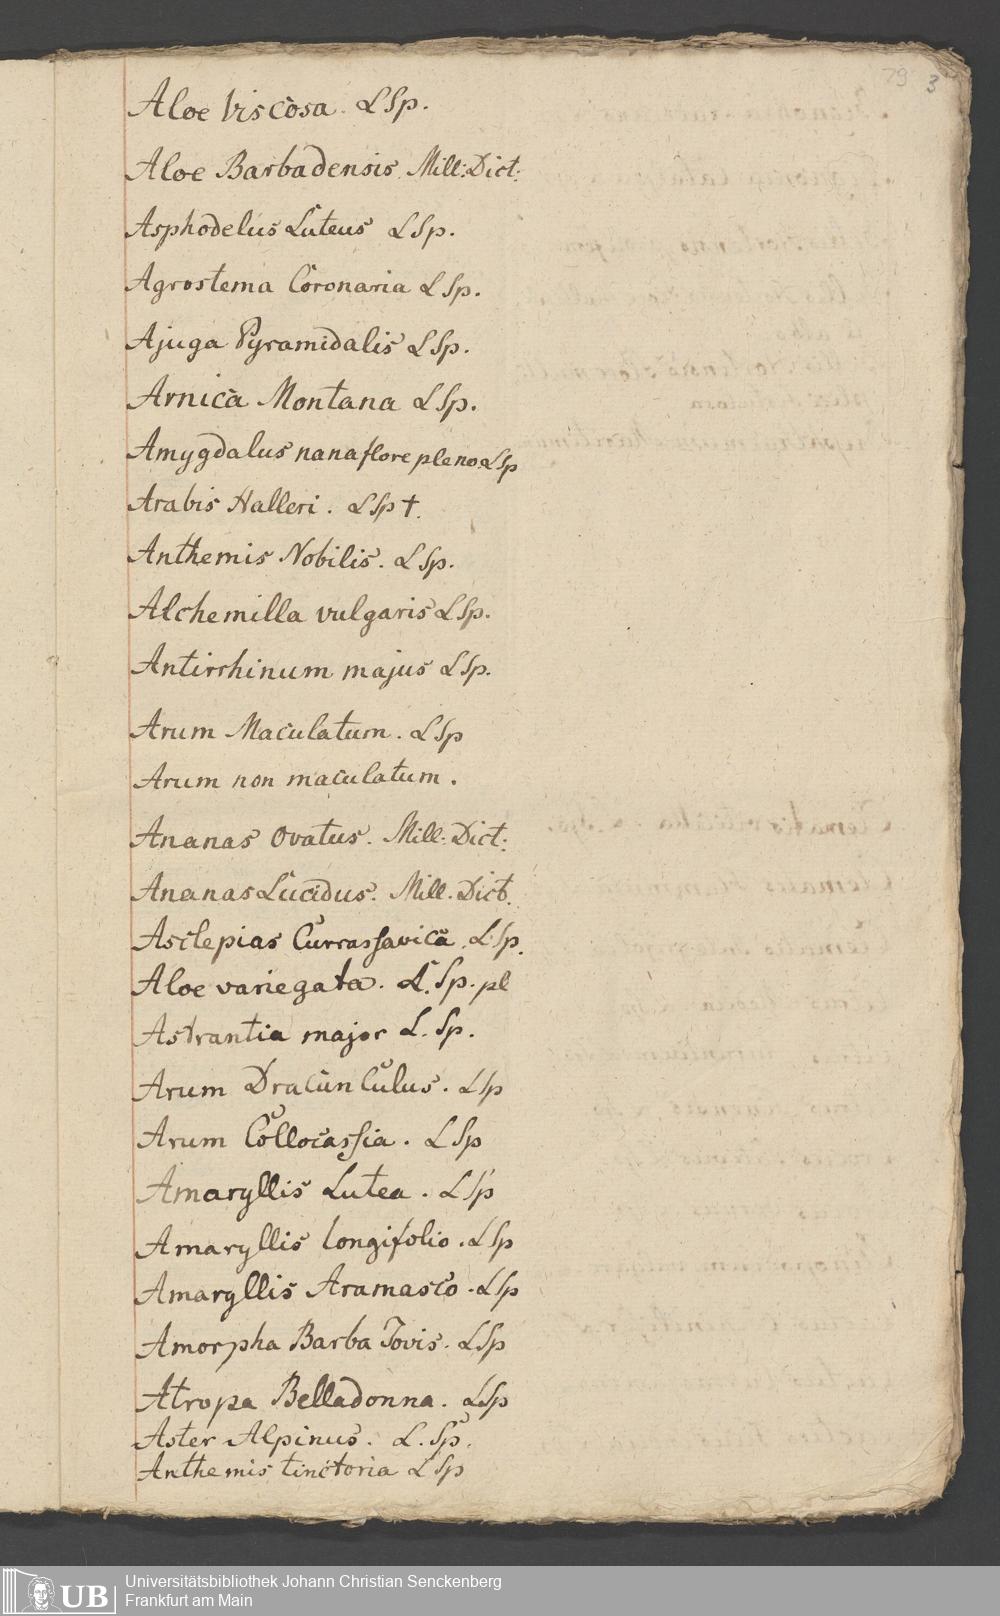 79 3
Aloe viscosa. L Sp.
Aloe Barbadensis. Mill: Dict:
Asphodelus Luteus L Sp.
Agrostema Coronaria L Sp.
Ajuga Pyramidalis L Sp.
Arnica Montana L Sp.
Amygdalus nana flore pleno. L Sp
Arabis Halleri. L Sp †.
Anthemis Nobilis. L Sp.
Alchemilla vulgaris L Sp.
Antirrhinum majus L Sp.
Arum Maculatum. L Sp
Arum non maculatum.
Ananas Ovatus. Mill: Dict:
Ananas Lucidus. Mill. Dict.
Asclepias Currassavica. L. Sp.
Aloe variegata. L. Sp. pl
Astrantia major L. Sp.
Arum Dracunculus. L Sp
Arum Collocassia. L Sp
Amaryllis Lutea. L Sp
Amaryllis longifolio. L Sp
Amaryllis Aramasco. L Sp
Amorpha Barba Jovis. L Sp
Atropa Belladonna. L Sp
Aster Alpinus. L. Sp.
Anthemis tinctoria L Sp
UB Universitätsbibliothek Johann Christian Senckenberg
Frankfurt am Main